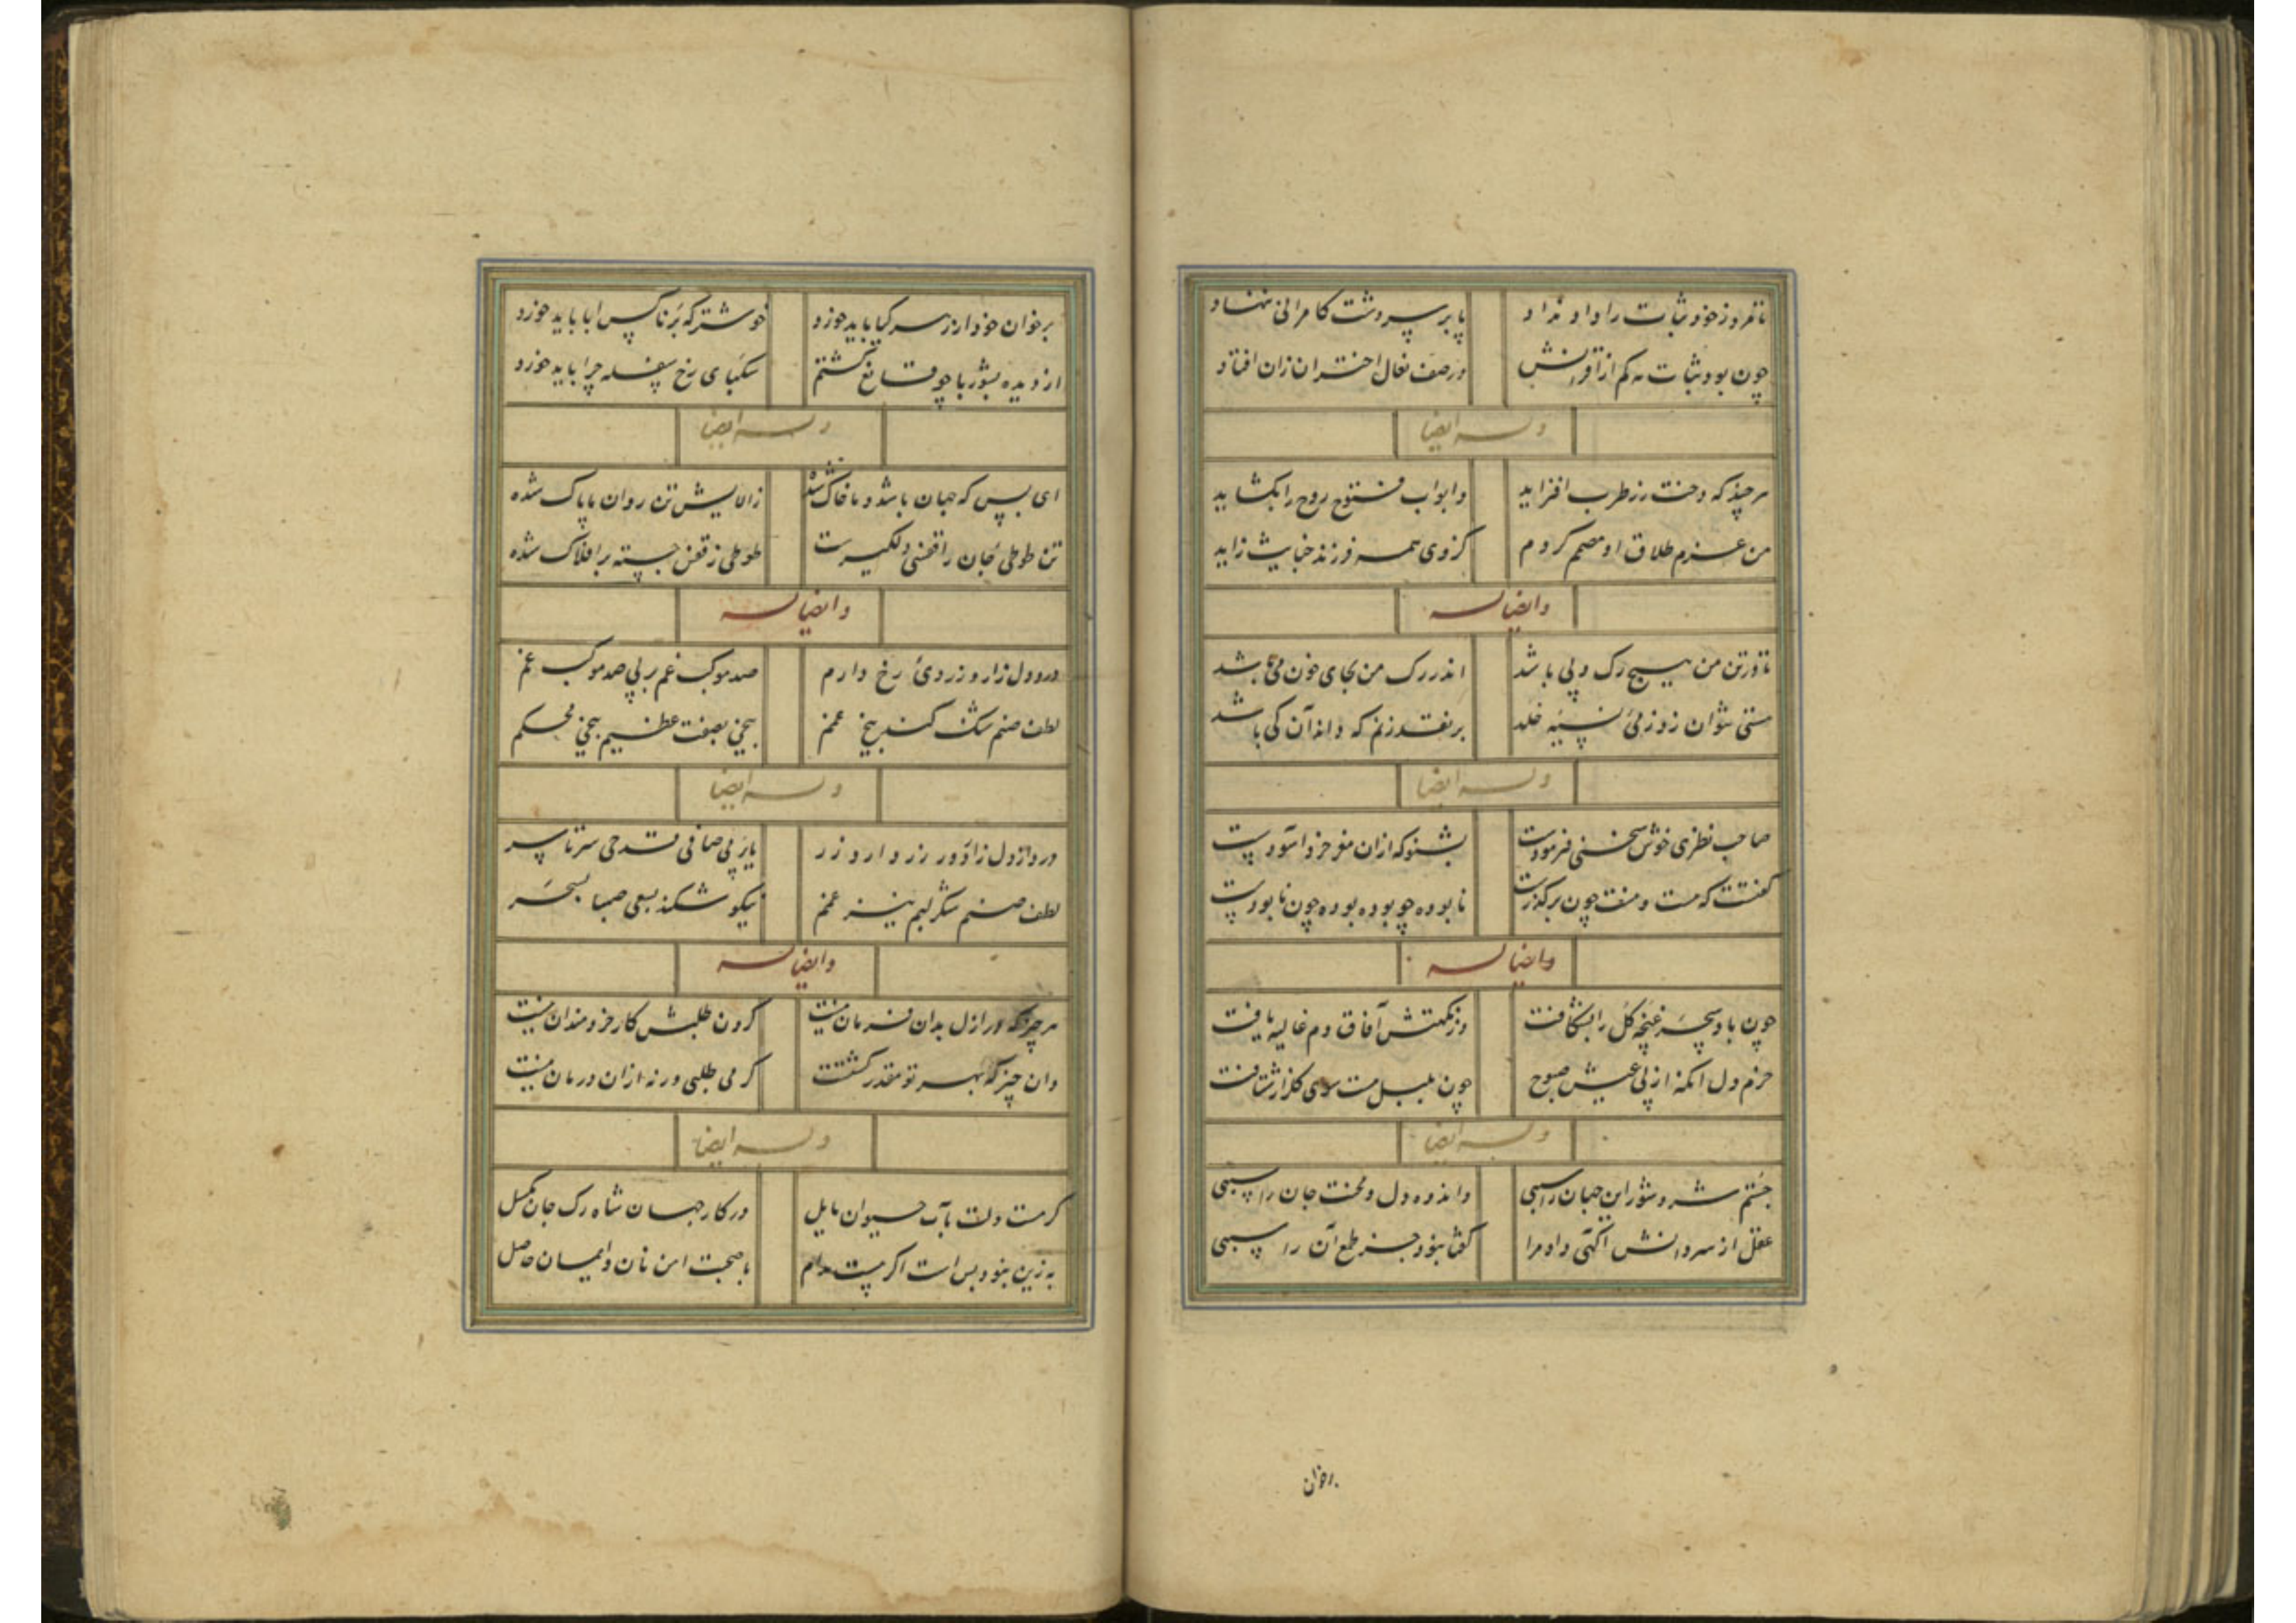 تا فر و ز خود ثبات را داد نداد پا بر سر و شت کامرانی ننهاد
چون بود ثبات مه کم از اقرانش در صف نعال اختران زان افتاد
وله ایضا
هر چیز که دخت رز طرب افزاید وابواب فتوح روح را بگشاید
من عزم طلاق او مصمم کردم کز وی همه فرزند خباثت زاید
وایضا له
تا در تن من هیچ رگ و پی باشد اندر رگ من بجای خون می باشد
مستی نتوان ز روز می نسیه خلد بر نقد زنم که داند آن کی باشد
وله ایضا
صاحب نظری خوش سخنی فرمودست بشنو که ازان مغز خرد آسودست
گفتت که هست و منت چون بر گذرست نابوده چو بوده بوده چون نابودست
وایضا له
چون باد سحر غنچه گل را بشکافت وز نکهتش آفاق دم غالیه یافت
خرم دل آنکه از پی عیش صبوح چون بلبل مست سوی گلزار شتافت
وله ایضا
جستم شر و شور این جهان را سببی واندوه دل و محنت جان را سببی
عقل از سر دانش آگهی داد مرا گفتا نبود جز طمع آن را سببی
بر خوان
بر خوان خود ار زهر گیا باید خورد خوشتر که بر ناکس ابا باید خورد
از دیده بشوربا چو قانع گشتم سکبای رخ سفله چرا باید خورد
وله ایضا
ای بس که جهان باشد و ما خاک شده ز آلایش تن روان ما پاک شده
تن طوطی جان را قفسی دلگیرست طوطی ز قفس جسته بر افلاک شده
وایضا له
درد دل زار و زردی رخ دارم صد موکب غم بر پی صد موکب غم
لطف صنم شکند بیخ غمم بیخی بصفت عظیم بیخی محکم
وله ایضا
درد از دل زاد و رزد دارو زر یا بر پی صافی قدحی سر تا سر
لطف صنم شکر لبم نیز غمم نیکو شکند بسعی صبا بسحر
وایضا له
هر چیز که در ازل بدان فرمان نیست کردن طلبش کار خردمندان نیست
وان چیز که بهر تو مقدر گشتت گر می طلبی ورنه ازان درمان نیست
وله ایضا
گر هست دلت بآب حیوان مایل در کار جهان شاه رگ جان مگسل
به زین نبود بس است اگر هست مدام با صحبت امن نان و ایمان حاصل